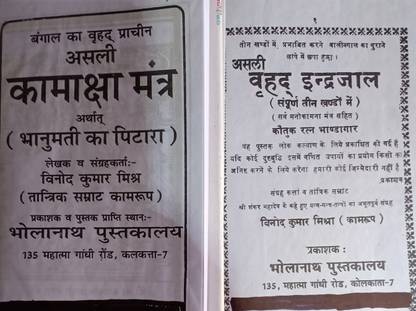 बंगाल का वृहद् प्राचीन
असली
कामाक्षा मंत्र
अर्थात्
( भानुमती का पिटारा )
लेखक व संग्रहकर्ता:-
विनोद कुमार मिश्र
( तान्त्रिक सम्राट कामरूप )
प्रकाशक व पुस्तक प्राप्ति स्थान:-
भोलानाथ पुस्तकालय
135 महात्मा गांधी रोड, कलकत्ता-7
१
तीन खण्डों में, प्रकाशित करने वाली का पुराने
छापे में छपा हुआ।
असली
वृहद् इन्द्रजाल
( संपूर्ण तीन खण्डों में )
( सर्व मनोकामना मंत्र सहित )
कौतुक रत्न भाण्डागार
यह पुस्तक लोक कल्याण के लिये प्रकाशित की गई है
यदि कोई दुरबुद्धि इसमें वर्णित उपायों का प्रयोग किसी का
अनिष्ट करने के लिये करेगा हमारी कोई जिम्मेदारी नहीं है
प्रकाशक
संग्रह कर्त्ता व तांत्रिक सम्राट
श्री शंकर महादेव के कहे हुए यन्त्र-मन्त्र-तन्त्रों का अभूतपूर्व संग्रह
विनोद कुमार मिश्रा ( कामरूप )
प्रकाशक :
भोलानाथ पुस्तकालय
135, महात्मा गांधी रोड, कोलकाता-7